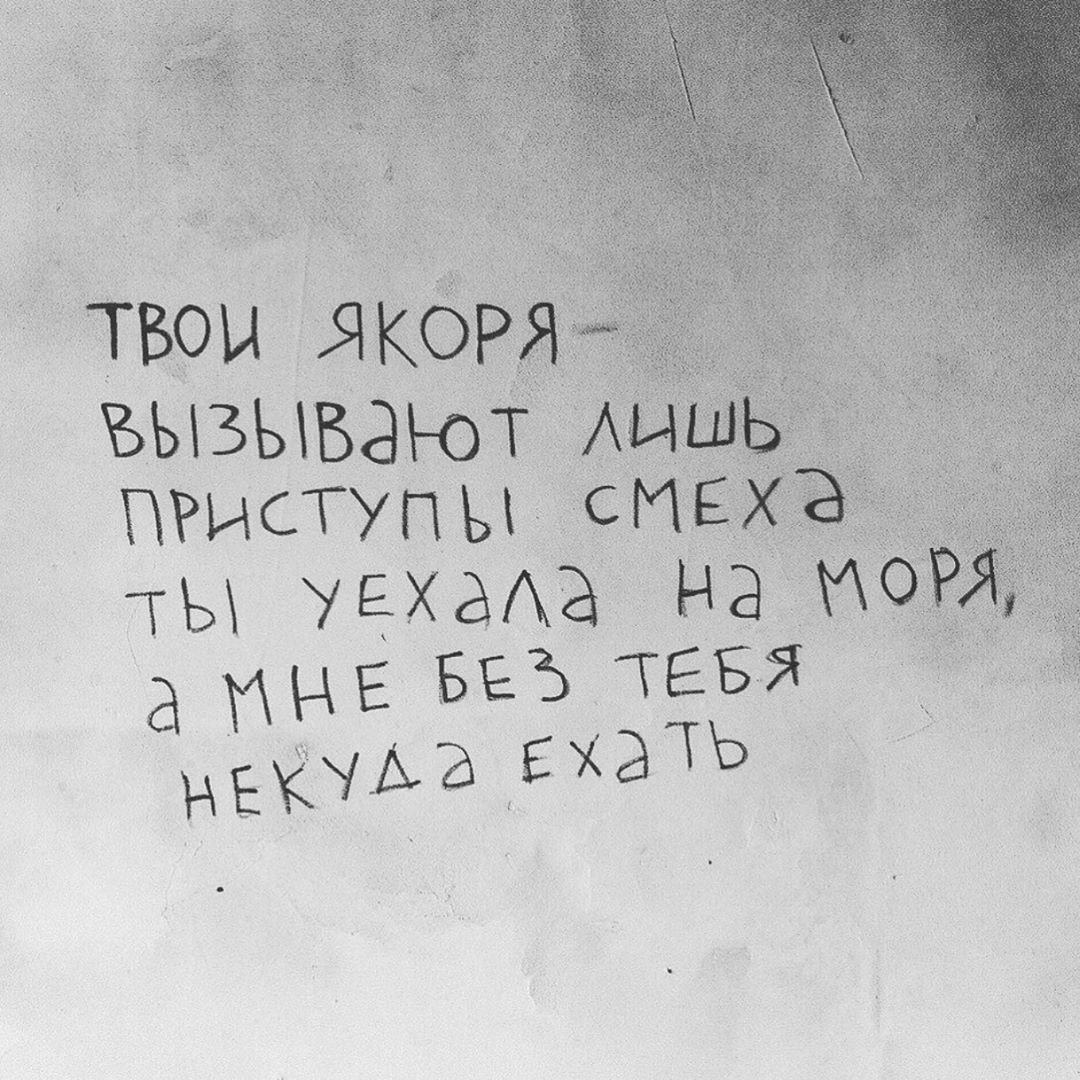 ТВОИ ЯКОРЯ -
ВЫЗЫВАЮТ ЛИШЬ
ПРИСТУПЫ СМЕХА
ТЫ УЕХАЛА НА МОРЯ,
А МНЕ БЕЗ ТЕБЯ
НЕКУДА ЕХАТЬ